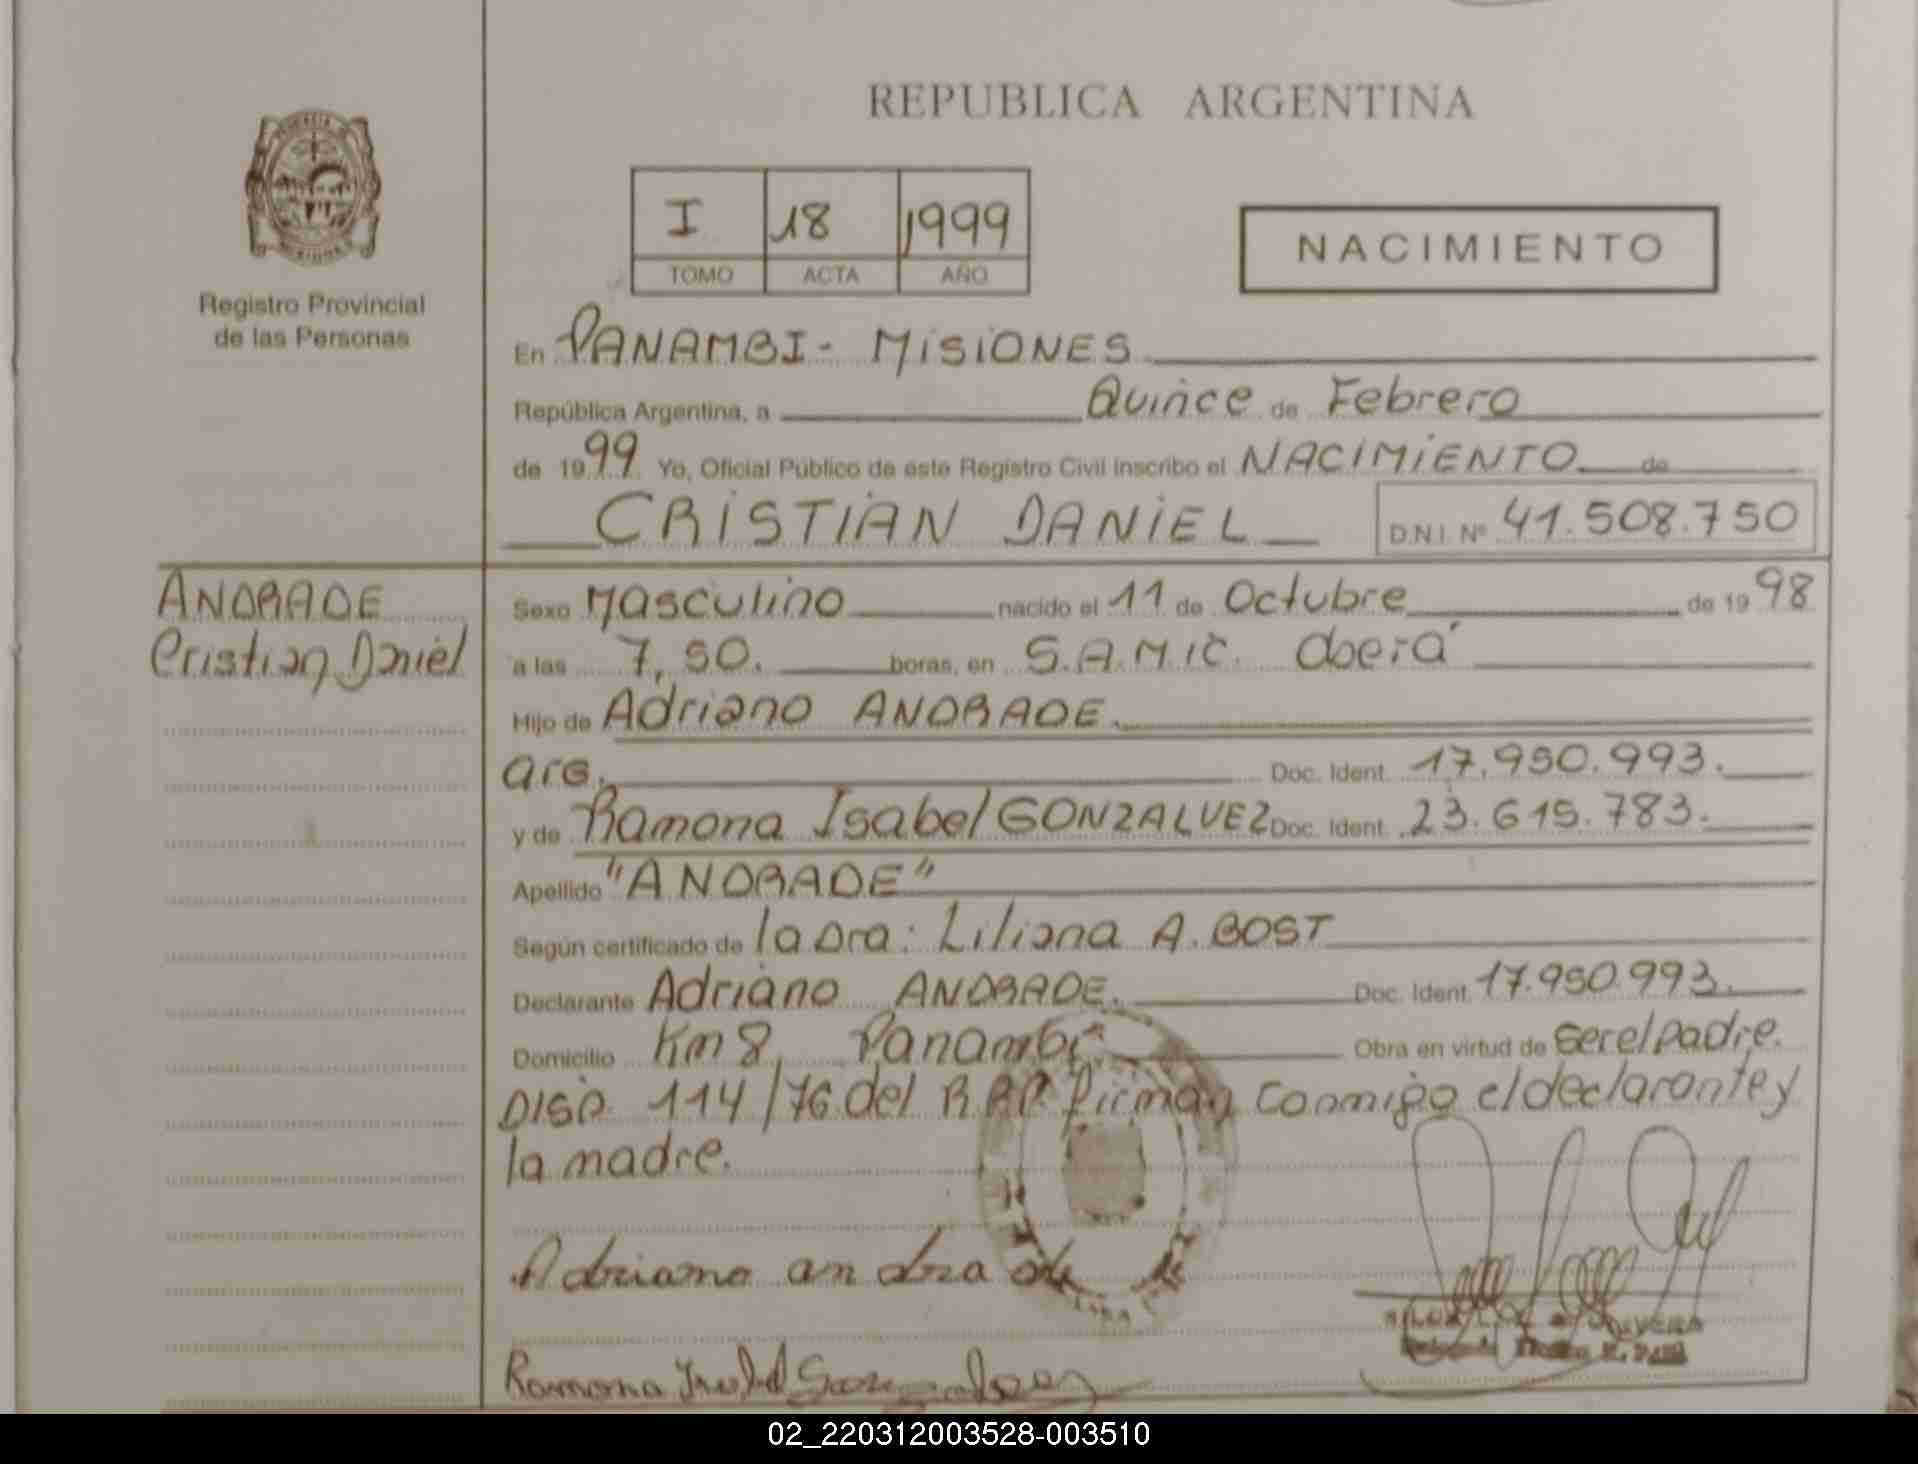 REPUBLICA ARGENTINA
Registro Provincial
de las Personas
I 18 1999
TOMO ACTA AÑO
NACIMIENTO
En PANAMBI - MISIONES
República Argentina, a Quince de Febrero
de 1999 Yo, Oficial Público de este Registro Civil inscribo el NACIMIENTO de
CRISTIAN DANIEL D.N.I. Nº 41.508.750
ANDRADE
Cristian Daniel
Sexo Masculino nacido el 11 de Octubre de 1998
a las 7,50. horas, en S.A.M.I.C. Oberá
Hijo de Adriano ANDRADE.
arg. Doc. Ident. 17.950.993.
y de Ramona Isabel GONZALVEZ Doc. Ident. 23.615.783.
Apellido "ANDRADE"
Según certificado de la Dra: Liliana A. BOST
Declarante Adriano ANDRADE. Doc. Ident. 17.950.993.
Domicilio Km 8, Panambi Obra en virtud de ser el padre.
DISP. 114/76 del R.P.P. firman conmigo el declarante y
la madre.
Adriano andrade
Ramona
02_220312003528-003510